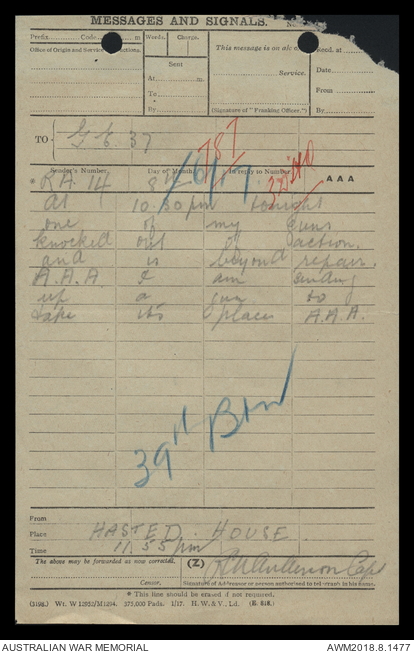 MESSAGES AND SIGNALS.
Prefix Code m
Words. Charge.
This message is on a/c of
Recd. at
Office of Origin and Service Instructions.
Sent
Service.
Date
At m.
To
From
By
(Signature of "Franking Officer.")
By
TO G.C. 37
787
Sender's Number. Day of Month In reply to Number. A A A
* RA. 14 8th
At 10.30 pm tonight
one of my guns
knocked out of action.
and is beyond repair.
A.A.A. I am sending
up a gun to
take its place A.A.A.
39th Btn
From
Place HASTED HOUSE
Time 11.55 pm
The above may be forwarded as now corrected. (Z)
Censor. Signature of Addressor or person authorised to telegraph in his name.
* This line should be erased if not required.
(3198.) Wt. W 12952/M1294. 275,000 Pads. 1/17. H. W. & V., Ld. (E. 818.)
AUSTRALIAN WAR MEMORIAL
AWM2018.8.1477